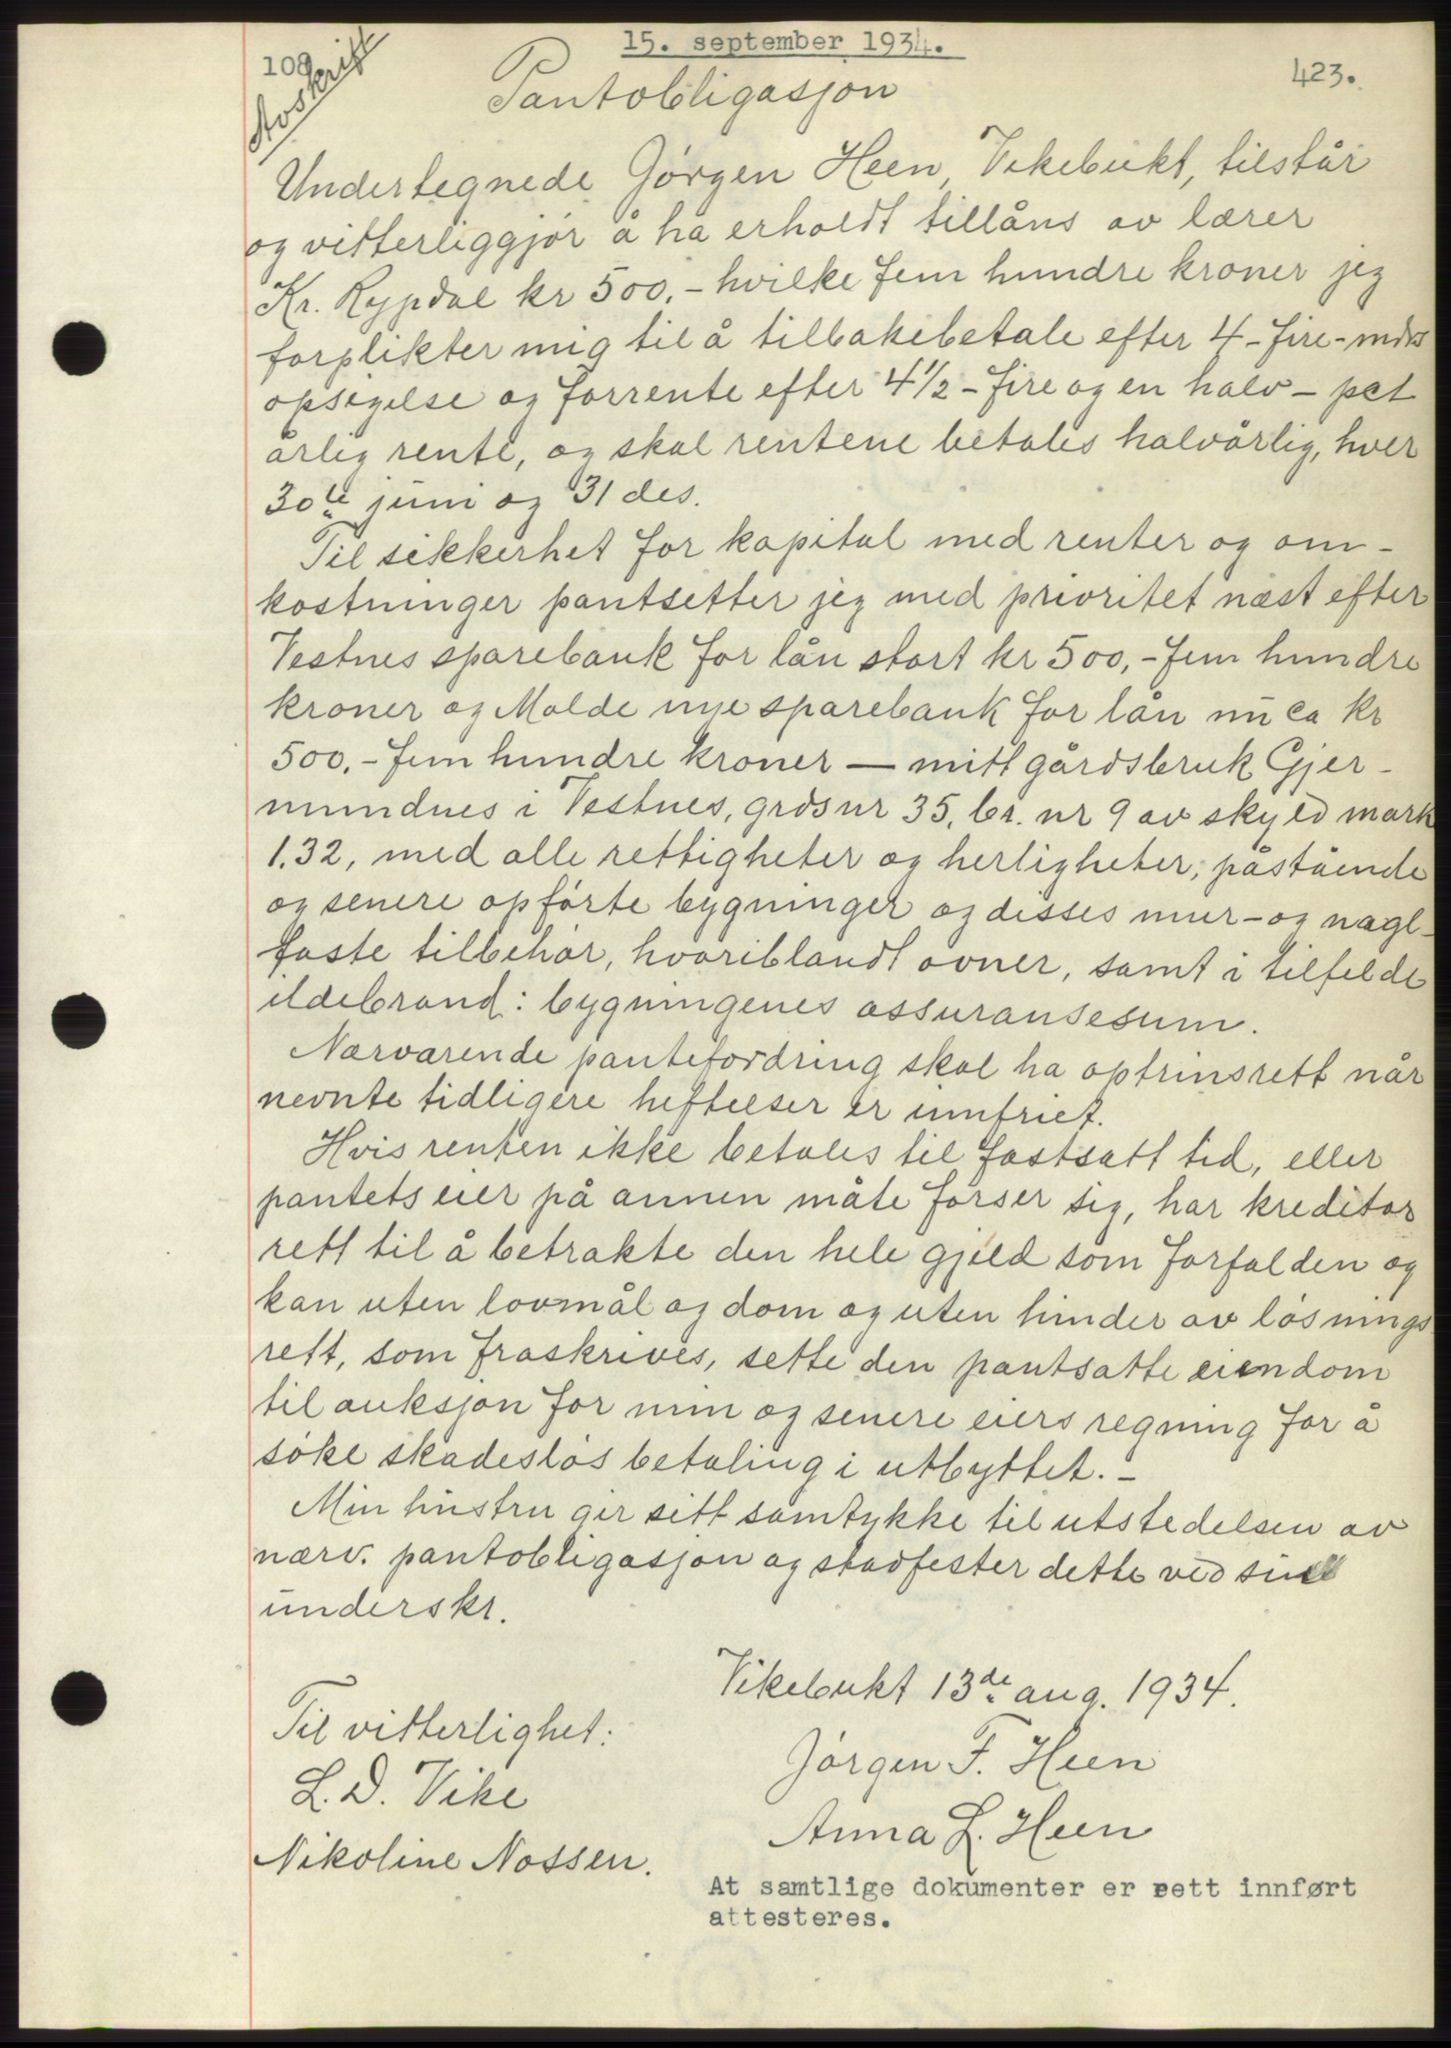 15. september 1934.
109
423.
Avskrift
Pantobligasjon
Undertegnede Jørgen Heen, Vikebukt, tilstår
og vitterliggjør å ha erholdt tillåns av lærer
Kr. Rypdal kr 500,- hvilke fem hundre kroner jeg
forplikter mig til å tilbakebetale efter 4 - fire - mdrs
opsigelse og forrente efter 4 1/2 - fire og en halv - pct
årlig rente, og skal rentene betales halvårlig, hver
30te juni og 31 des.
Til sikkerhet for kapital med renter og om-
kostninger pantsetter jeg med prioritet næst efter
Vestnes sparebank for lån stort kr 500,- fem hundre
kroner og Molde nye sparebank for lån nu ca kr
500,- fem hundre kroner — mitt gårdsbruk Gjer-
mundnes i Vestnes, grdsnr 35, br. nr 9 av skyld mark
1.32, med alle rettigheter og herligheter, påstående
og senere opførte bygninger og disses mur- og nagl-
faste tilbehør, hvoriblandt ovner, samt i tilfelde
ildebrand: bygningenes assuransesum.
Nærværende pantefordring skal ha optrinsrett når
nevnte tidligere heftelser er innfriet.
Hvis renten ikke betales til fastsatt tid, eller
pantets eier på annen måte forser sig, har kreditor
rett til å betrakte den hele gjeld som forfalden og
kan uten lovmål og dom og uten hinder av løsnings
rett, som fraskrives, sette den pantsatte eiendom
til auksjon for min og senere eiers regning for å
søke skadesløs betaling i utbyttet. -
Min hustru gir sitt samtykke til utstedelsen av
nærv. pantobligasjon og stadfester dette ved sin
underskr.
Vikebukt 13de aug. 1934.
Til vitterlighet:
Jørgen F. Heen
L. D. Vike
Anna L. Heen
Nikoline Nossen.
At samtlige dokumenter er rett innført
attesteres.